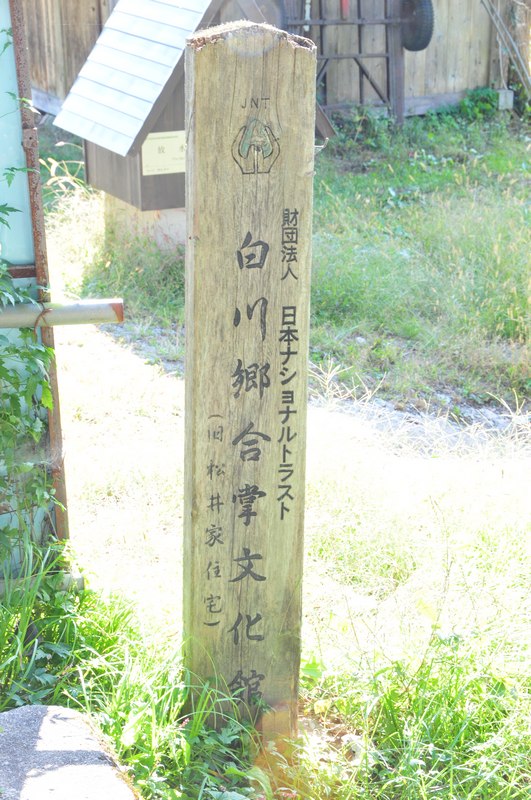 JNT
財団法人 日本ナショナルトラスト
白川郷合掌文化館
(旧松井家住宅)
放水